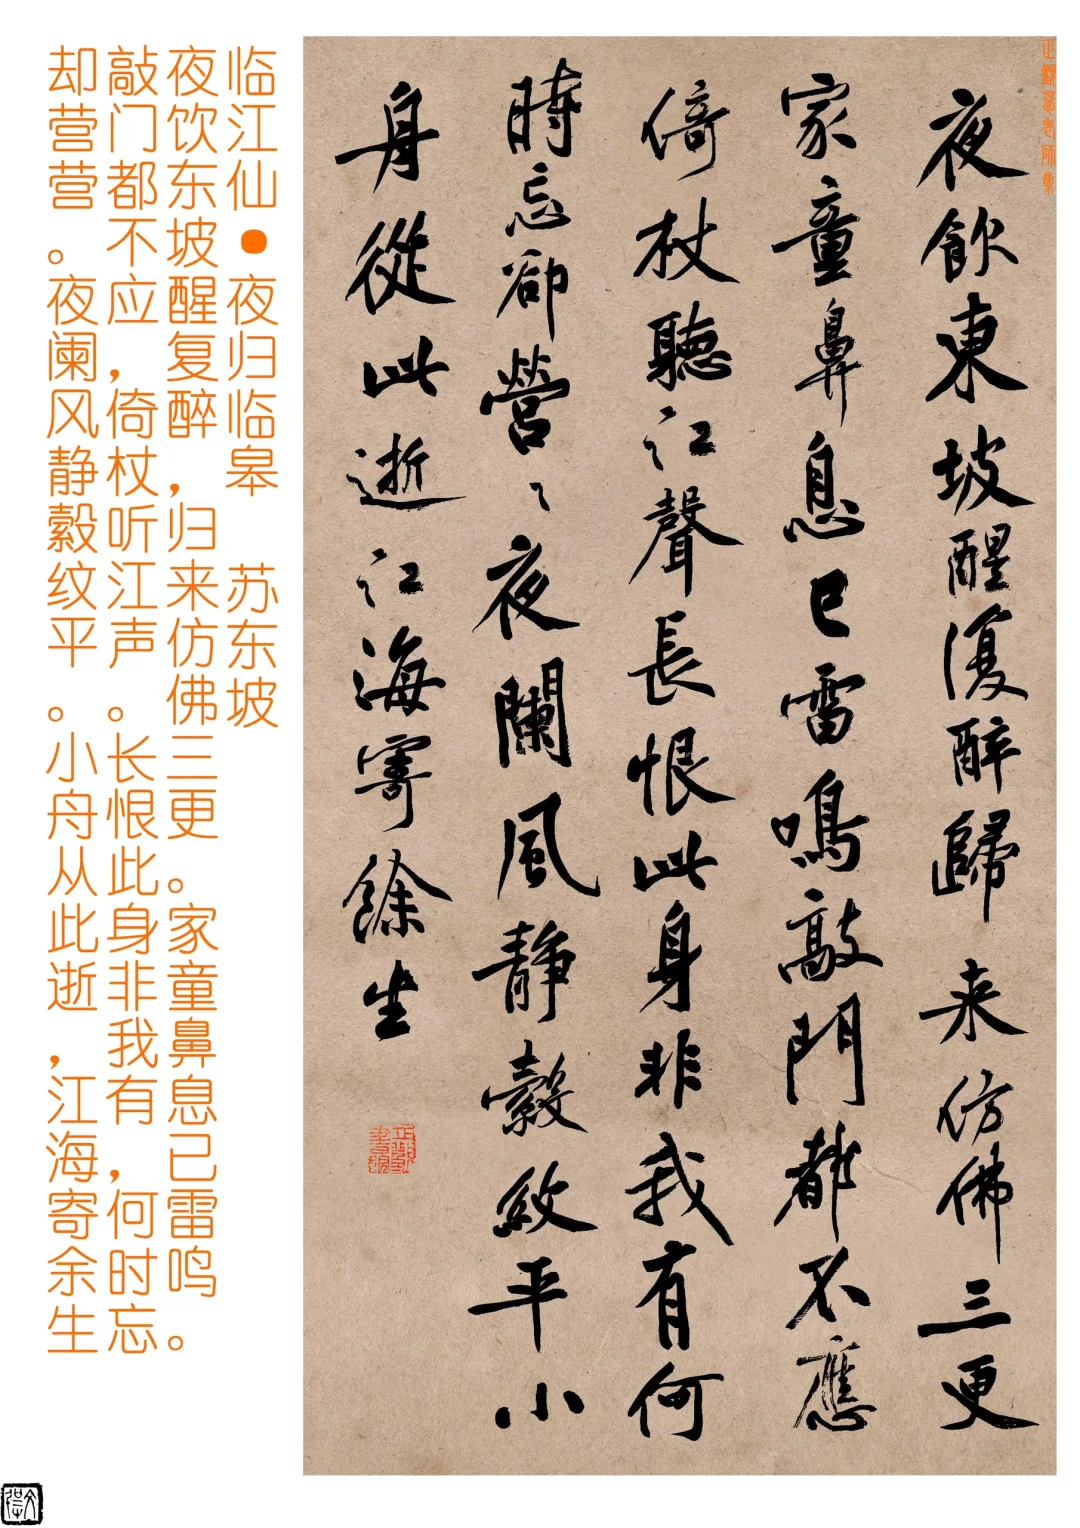 临江仙●夜归临皋 苏东坡
夜饮东坡醒复醉，归来仿佛三更。家童鼻息已雷鸣。
敲门都不应，倚杖听江声。长恨此身非我有，何时忘
却营营。夜阑风静縠纹平。小舟从此逝，江海寄余生
夜飲東坡醒復醉歸来仿佛三更
家童鼻息已雷鳴敲門都不應
倚杖聽江聲長恨此身非我有何
時忘卻營〻夜闌風靜縠紋平小
舟從此逝江海寄餘生